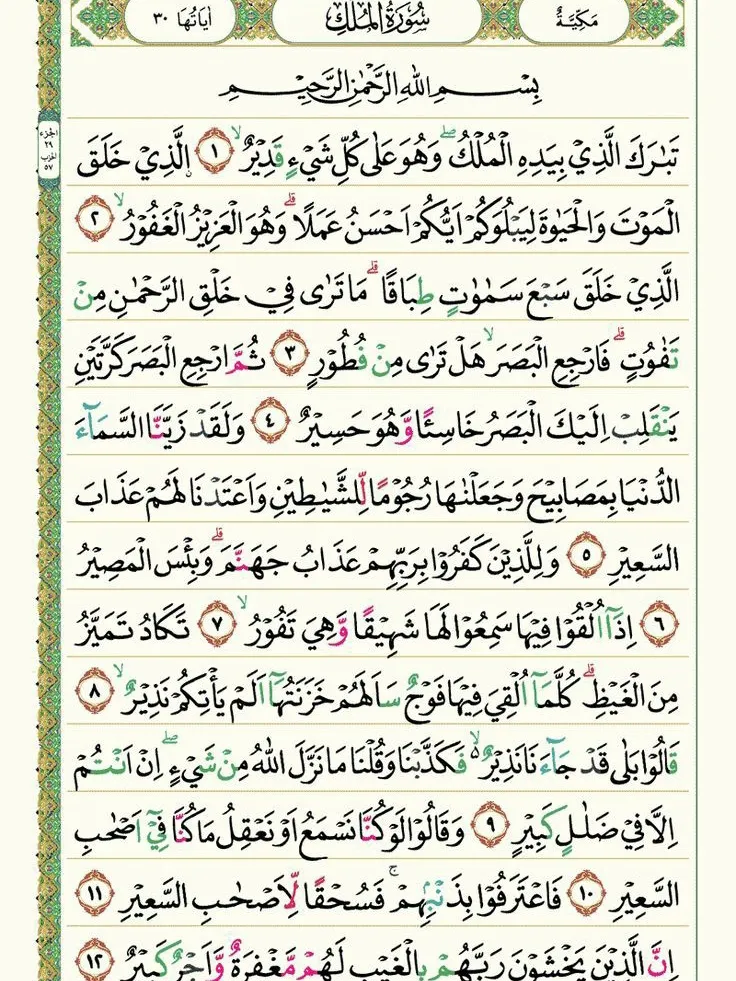 مَكِّيَّةٌ سُوْرَةُ الْمُلْكِ اٰيَاتُهَا ٣٠
بِسْمِ اللهِ الرَّحْمٰنِ الرَّحِيْمِ
الجزء
٢٩
الحزب
٥٧
تَبٰرَكَ الَّذِيْ بِيَدِهِ الْمُلْكُ ۖ وَهُوَ عَلٰى كُلِّ شَيْءٍ قَدِيْرٌ ۙ ١ اۨلَّذِيْ خَلَقَ
الْمَوْتَ وَالْحَيٰوةَ لِيَبْلُوَكُمْ اَيُّكُمْ اَحْسَنُ عَمَلًا ۗ وَهُوَ الْعَزِيْزُ الْغَفُوْرُ ۙ ٢
الَّذِيْ خَلَقَ سَبْعَ سَمٰوٰتٍ طِبَاقًا ۗ مَا تَرٰى فِيْ خَلْقِ الرَّحْمٰنِ مِنْ
تَفٰوُتٍ ۗ فَارْجِعِ الْبَصَرَ ۙ هَلْ تَرٰى مِنْ فُطُوْرٍ ٣ ثُمَّ ارْجِعِ الْبَصَرَ كَرَّتَيْنِ
يَنْقَلِبْ اِلَيْكَ الْبَصَرُ خَاسِئًا وَّهُوَ حَسِيْرٌ ٤ وَلَقَدْ زَيَّنَّا السَّمَاۤءَ
الدُّنْيَا بِمَصَابِيْحَ وَجَعَلْنٰهَا رُجُوْمًا لِّلشَّيٰطِيْنِ وَاَعْتَدْنَا لَهُمْ عَذَابَ
السَّعِيْرِ ٥ وَلِلَّذِيْنَ كَفَرُوْا بِرَبِّهِمْ عَذَابُ جَهَنَّمَ ۗ وَبِئْسَ الْمَصِيْرُ
٦ اِذَآ اُلْقُوْا فِيْهَا سَمِعُوْا لَهَا شَهِيْقًا وَّهِيَ تَفُوْرُ ۙ ٧ تَكَادُ تَمَيَّزُ
مِنَ الْغَيْظِ ۗ كُلَّمَآ اُلْقِيَ فِيْهَا فَوْجٌ سَاَلَهُمْ خَزَنَتُهَآ اَلَمْ يَأْتِكُمْ نَذِيْرٌ ۙ ٨
قَالُوْا بَلٰى قَدْ جَاۤءَنَا نَذِيْرٌ ۙ فَكَذَّبْنَا وَقُلْنَا مَا نَزَّلَ اللهُ مِنْ شَيْءٍ ۖ اِنْ اَنْتُمْ
اِلَّا فِيْ ضَلٰلٍ كَبِيْرٍ ٩ وَقَالُوْا لَوْ كُنَّا نَسْمَعُ اَوْ نَعْقِلُ مَا كُنَّا فِيْٓ اَصْحٰبِ
السَّعِيْرِ ١٠ فَاعْتَرَفُوْا بِذَنْۢبِهِمْ ۚ فَسُحْقًا لِّاَصْحٰبِ السَّعِيْرِ ١١
اِنَّ الَّذِيْنَ يَخْشَوْنَ رَبَّهُمْ بِالْغَيْبِ لَهُمْ مَّغْفِرَةٌ وَّاَجْرٌ كَبِيْرٌ ١٢